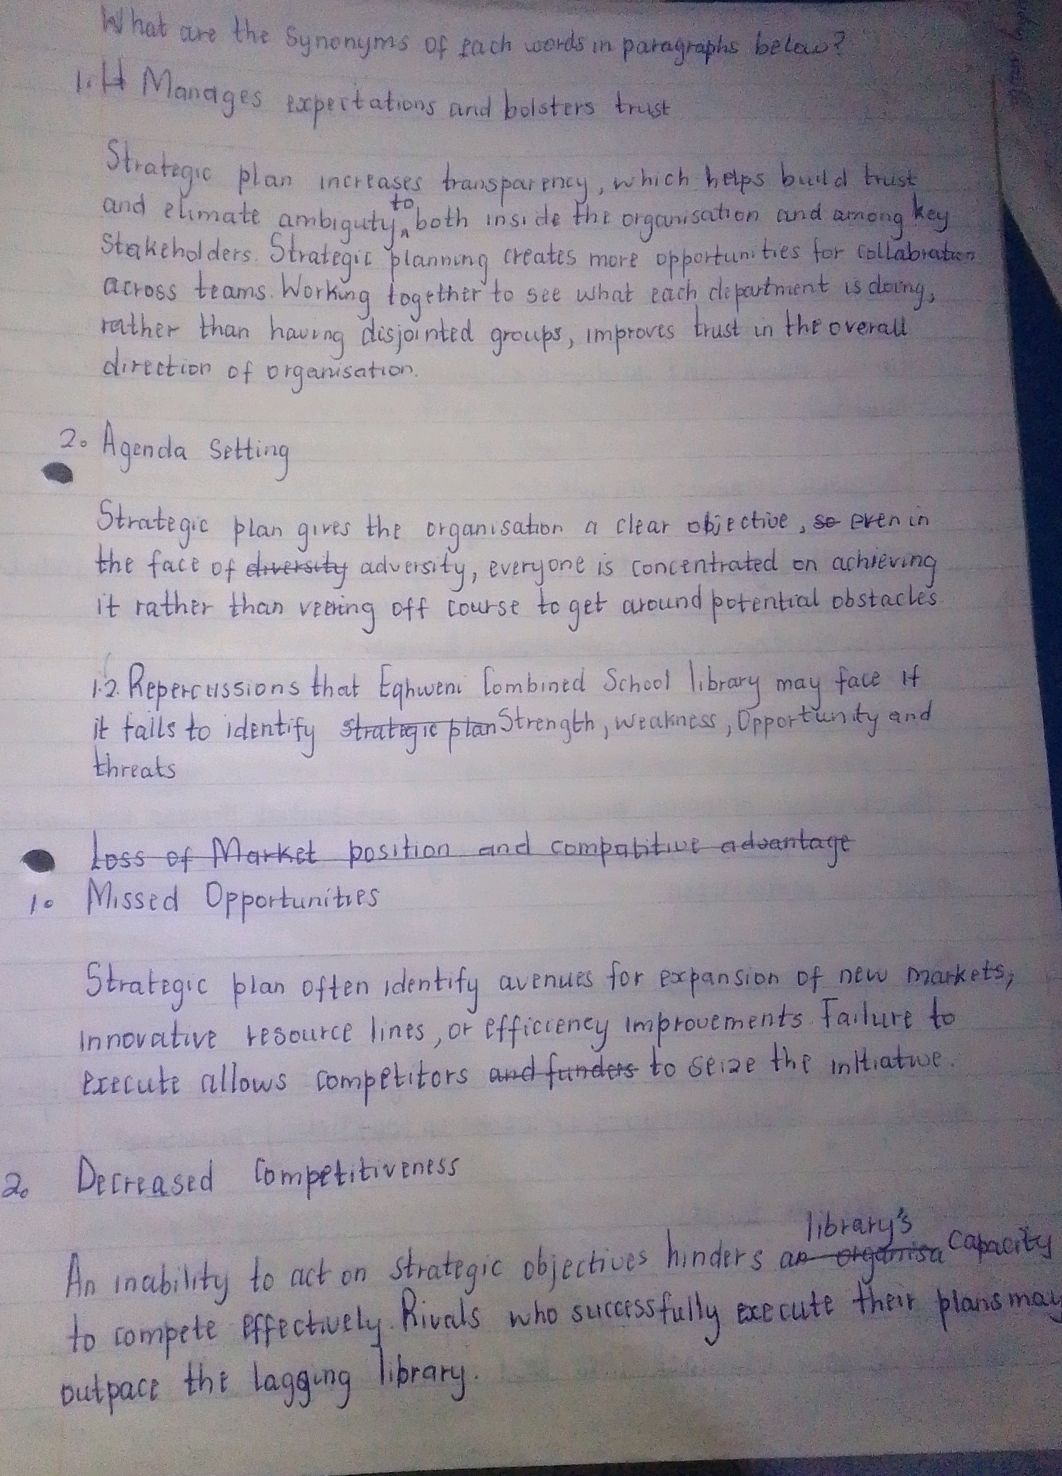 What are the Synonyms of each words in paragraphs below?
1. It Manages expectations and bolsters trust
Strategic plan increases transparency, which helps build trust
and elimate ambiguty to both inside the organisation and among key
Stakeholders. Strategic planning creates more opportunities for collabration
across teams. Working together to see what each department is doing,
rather than having disjointed groups, improves trust in the overall
direction of organisation.
2. Agenda Setting
Strategic plan gives the organisation a clear objective, so even in
the face of diversity adversity, everyone is concentrated on achieving
it rather than veering off course to get around potential obstacles
1.2. Repercussions that Eqhweni Combined School library may face if
it fails to identify strategic plan Strength, weakness, Opportunity and
threats
Loss of Market position and compatitive advantage
1. Missed Opportunities
Strategic plan often identify avenues for expansion of new markets,
innovative resource lines, or efficiency improvements. Failure to
execute allows competitors and funders to seize the initiative.
2. Decreased Competitiveness
An inability to act on strategic objectives hinders an organisa library's capacity
to compete effectively. Rivals who successfully execute their plans may
outpace the lagging library.